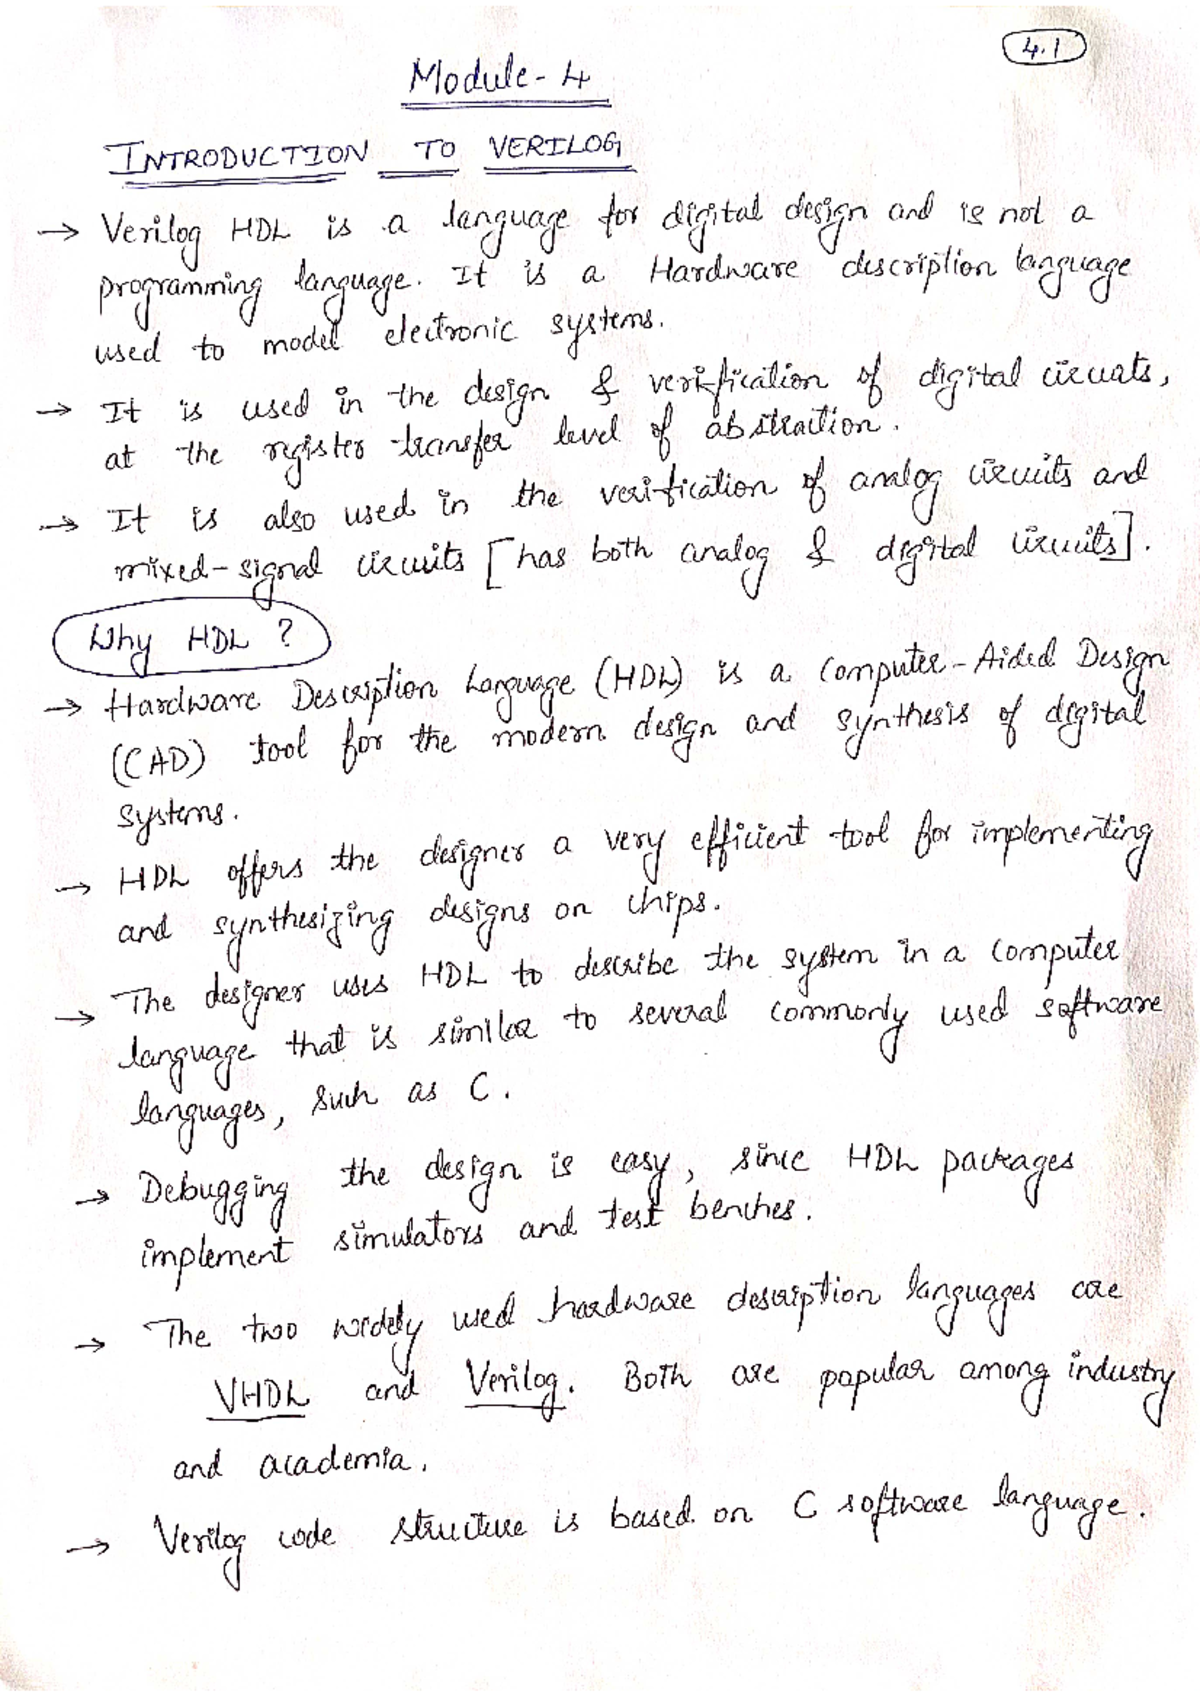 4.1
Module-4
INTRODUCTION TO VERILOG
→ Verilog HDL is a language for digital design and is not a
programming language. It is a Hardware description language
used to model electronic systems.
→ It is used in the design & verification of digital circuits,
at the register transfer level of abstraction.
→ It is also used in the verification of analog circuits and
mixed-signal circuits [has both analog & digital circuits].
Why HDL ?
→ Hardware Description Language (HDL) is a Computer-Aided Design
(CAD) tool for the modern design and synthesis of digital
systems.
→ HDL offers the designer a very efficient tool for implementing
and synthesizing designs on chips.
→ The designer uses HDL to describe the system in a computer
language that is similar to several commonly used software
languages, such as C.
→ Debugging the design is easy, since HDL packages
implement simulators and test benches.
→ The two widely used hardware description languages are
VHDL and Verilog. Both are popular among industry
and academia.
→ Verilog code structure is based on C software language.